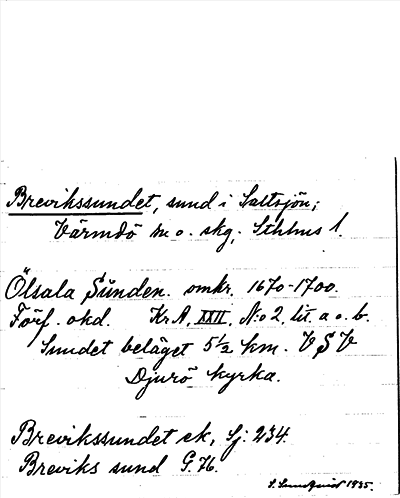 Brevikssundet, sund i Saltsjön;
Värmdö sn o. skg; Sthlms l.
Ölsala Sŭnden. omkr. 1670-1700.
Förf. okd. Kr.A, XXII, N:o 2, lit. a o. b.
Sundet beläget 5½ km. V S V
Djurö kyrka.
Brevikssundet ek, Sj: 234.
Breviks sund G.K.
S. Sundqvist 1935.